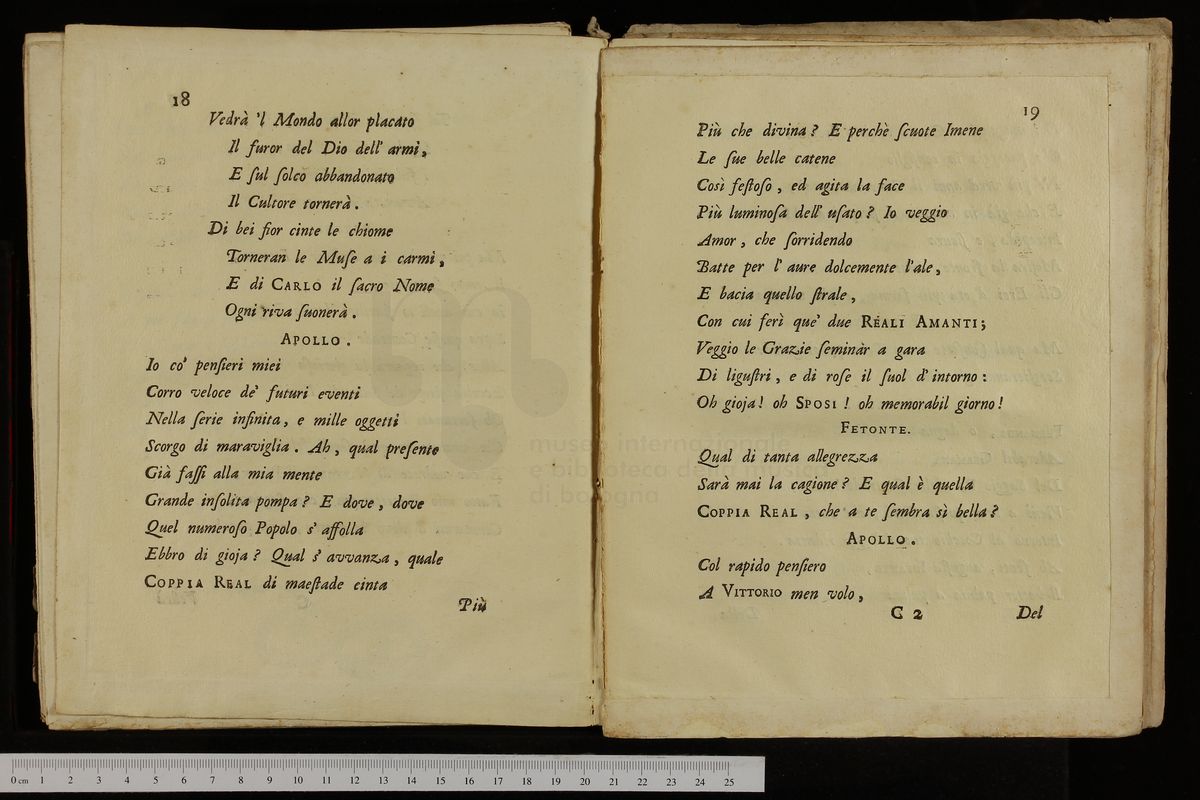 18
Vedrà 'l Mondo allor placato
Il furor del Dio dell' armi,
E ſul ſolco abbandonato
Il Cultore tornerà.
Di bei fior cinte le chiome
Torneran le Muſe a i carmi,
E di CARLO il ſacro Nome
Ogni riva ſuonerà.
APOLLO.
Io co' penſieri miei
Corro veloce de' futuri eventi
Nella ſerie infinita, e mille oggetti
Scorgo di maraviglia. Ah, qual preſente
Già faſſi alla mia mente
Grande inſolita pompa? E dove, dove
Quel numeroſo Popolo s' affolla
Ebbro di gioja? Qual s' avvanza, quale
COPPIA REAL di maeſtade cinta
Più
19
Più che divina? E perchè ſcuote Imene
Le ſue belle catene
Così feſtoſo, ed agita la face
Più luminoſa dell' uſato? Io veggio
Amor, che ſorridendo
Batte per l' aure dolcemente l'ale,
E bacia quello ſtrale,
Con cui ferì que' due REALI AMANTI;
Veggio le Grazie ſeminàr a gara
Di liguſtri, e di roſe il ſuol d' intorno:
Oh gioja! oh SPOSI! oh memorabil giorno!
FETONTE.
Qual di tanta allegrezza
Sarà mai la cagione? E qual è quella
COPPIA REAL, che a te ſembra sì bella?
APOLLO.
Col rapido penſiero
A VITTORIO men volo,
C 2
Del
museo internazionale
e biblioteca della musica
di bologna
0 cm 1 2 3 4 5 6 7 8 9 10 11 12 13 14 15 16 17 18 19 20 21 22 23 24 25